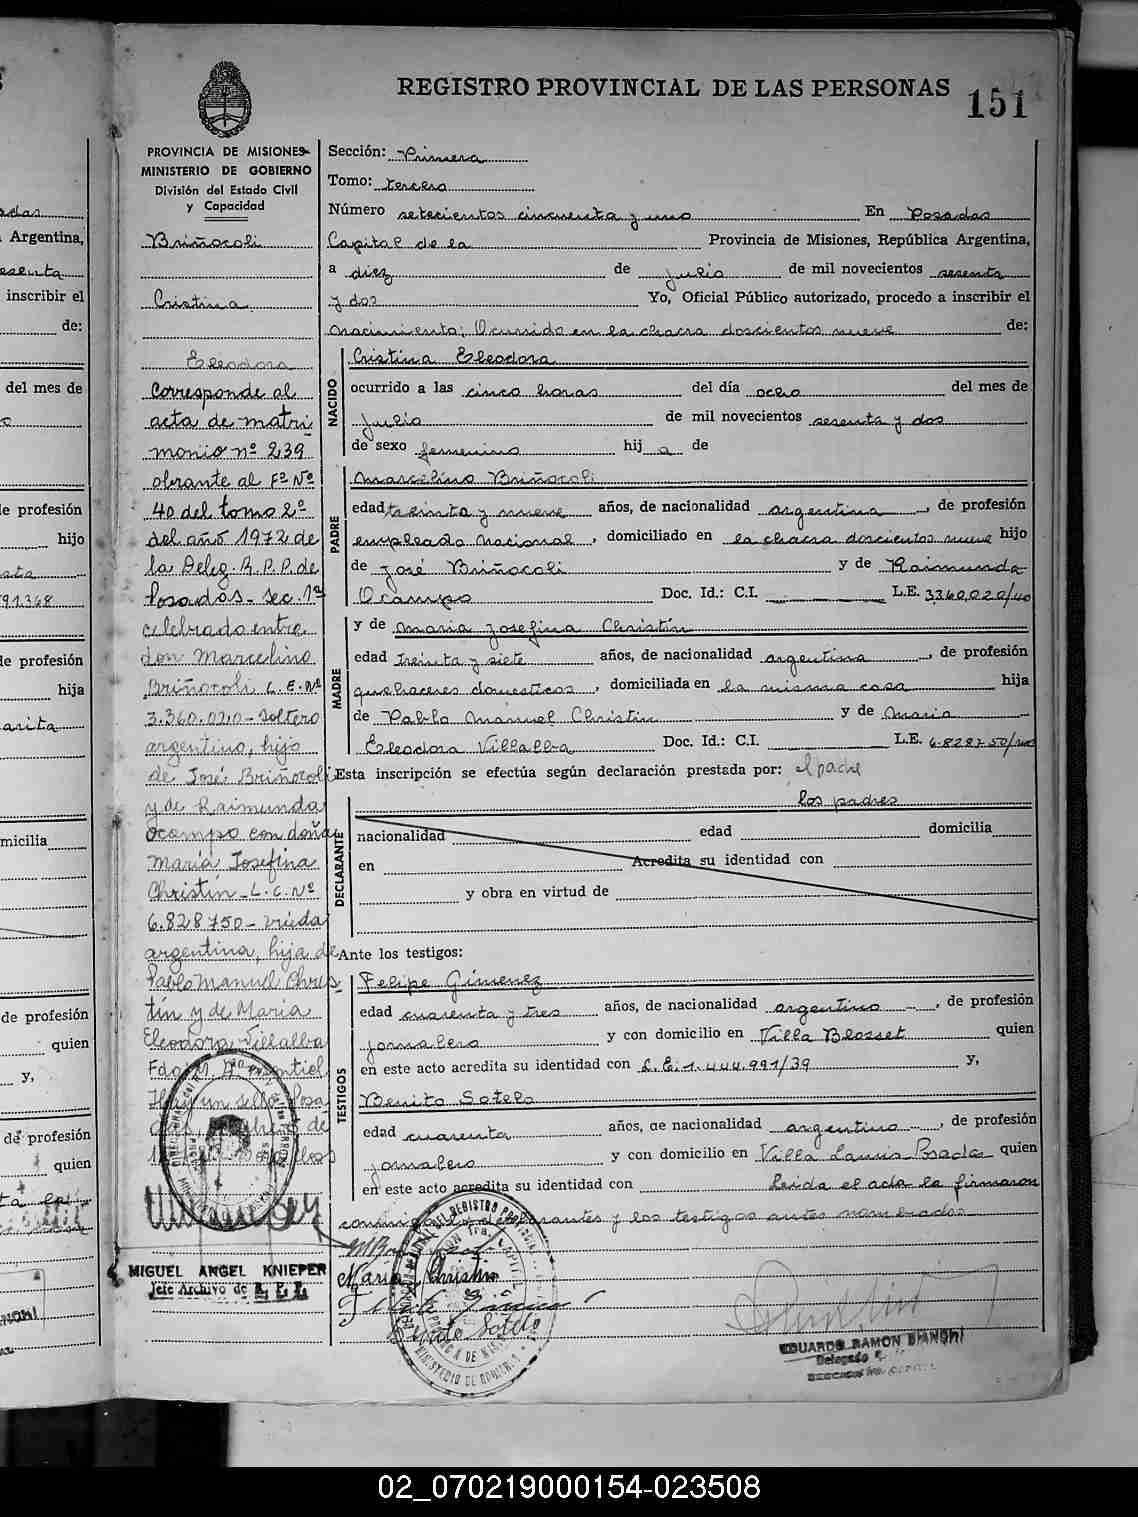 REGISTRO PROVINCIAL DE LAS PERSONAS
151
PROVINCIA DE MISIONES
MINISTERIO DE GOBIERNO
División del Estado Civil
y Capacidad
Briñocoli
Cristina
Eleodora
Corresponde al
acta de matri
monio nº 239
obrante al Fº Nº
40 del tomo 2º
del año 1972 de
la Deleg. R.P.P. de
Posadas - sec. 1ª
celebrado entre
don Marcelino
Briñocoli L.E. Nº
3.360.020 - soltero
argentino, hijo
de José Briñocoli
y de Raimunda
Ocampo con doña
María Josefina
Christín - L.C. Nº
6.828750 - viuda
argentina, hija de
Pablo Manuel Chris
tín y de María
Eleodora Villalba
Hay un sello
MIGUEL ANGEL KNIEPER
Jefe Archivo de R.P.P.
Sección: Primera
Tomo: tercero
Número setecientos cincuenta y uno En Posadas
Capital de la Provincia de Misiones, República Argentina,
a diez de julio de mil novecientos sesenta
y dos Yo, Oficial Público autorizado, procedo a inscribir el
nacimiento; Ocurrido en la chacra doscientos nueve de:
NACIDO
Cristina Eleodora
ocurrido a las cinco horas del día ocho del mes de
julio de mil novecientos sesenta y dos
de sexo femenino hij a de
PADRE
Marcelino Briñocoli
edad treinta y nueve años, de nacionalidad argentina, de profesión
empleado nacional, domiciliado en la chacra doscientos nueve hijo
de José Briñocoli y de Raimunda
Ocampo Doc. Id.: C.I. L.E. 3360,020/40
MADRE
y de Maria Josefina Christín
edad treinta y siete años, de nacionalidad argentina, de profesión
quehaceres domesticos, domiciliada en la misma casa hija
de Pablo Manuel Christin y de Maria
Eleodora Villalba Doc. Id.: C.I. L.E. 6.828750/
Esta inscripción se efectúa según declaración prestada por: el padre
los padres
DECLARANTE
nacionalidad edad domicilia
en Acredita su identidad con
y obra en virtud de
Ante los testigos:
TESTIGOS
Felipe Gimenez
edad cuarenta y tres años, de nacionalidad argentino, de profesión
jornalero y con domicilio en Villa Blosset quien
en este acto acredita su identidad con L.E. 1.444.991/39 y,
Benito Sotelo
edad cuarenta años, de nacionalidad argentino, de profesión
jornalero y con domicilio en Villa Lanus-Posadas quien
en este acto acredita su identidad con Leida el acta la firmaron
conmigo los declarantes y los testigos antes nombrados
Maria Christin
Benito Sotelo
EDUARDO RAMON BIANCHI
Delegado
Argentina,
inscribir el
de:
del mes de
de profesión
hijo
91.368
de profesión
hija
arita
micilia
de profesión
quien
y,
de profesión
quien
02_070219000154-023508